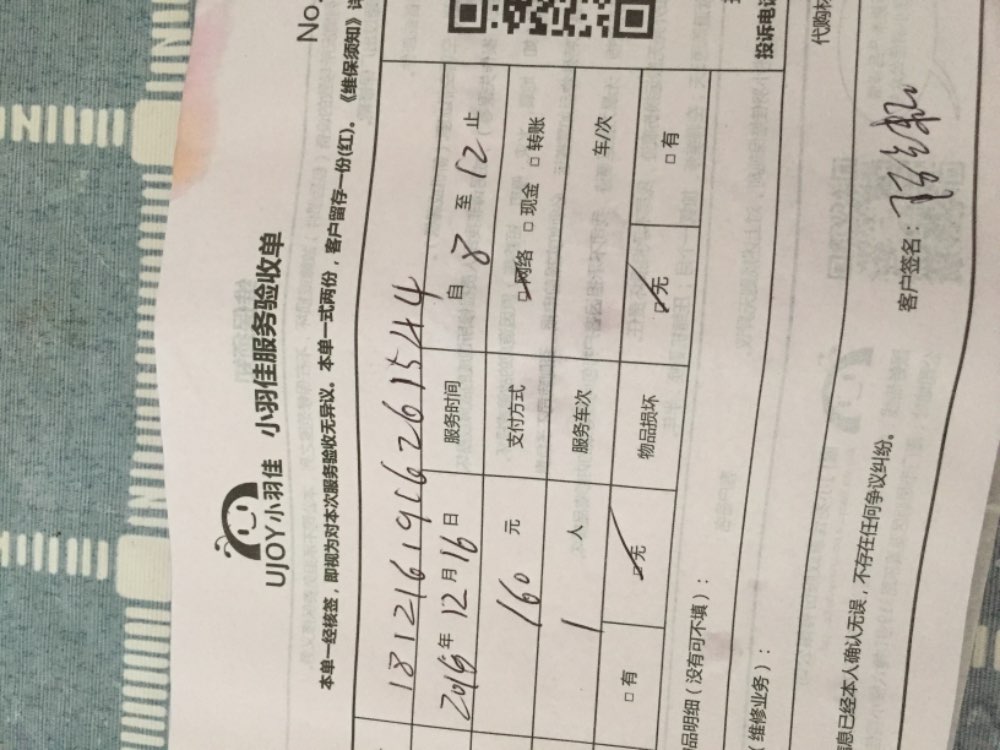 No.
UJOY小羽佳 小羽佳服务验收单
本单一经核签，即视为对本次服务验收无异议。本单一式两份，客户留存一份(红)。《维保须知》详
18121619662615444
2019年12月16日 服务时间 自 8 至 12 止
160 元 支付方式 ☑网络 □现金 □转账
1 人 服务车次 车/次
□有 ☑无 物品损坏 ☑无 □有
品明细（没有可不填）：
（维修业务）：
投诉电话
代购材
息已经本人确认无误，不存在任何争议纠纷。
客户签名：